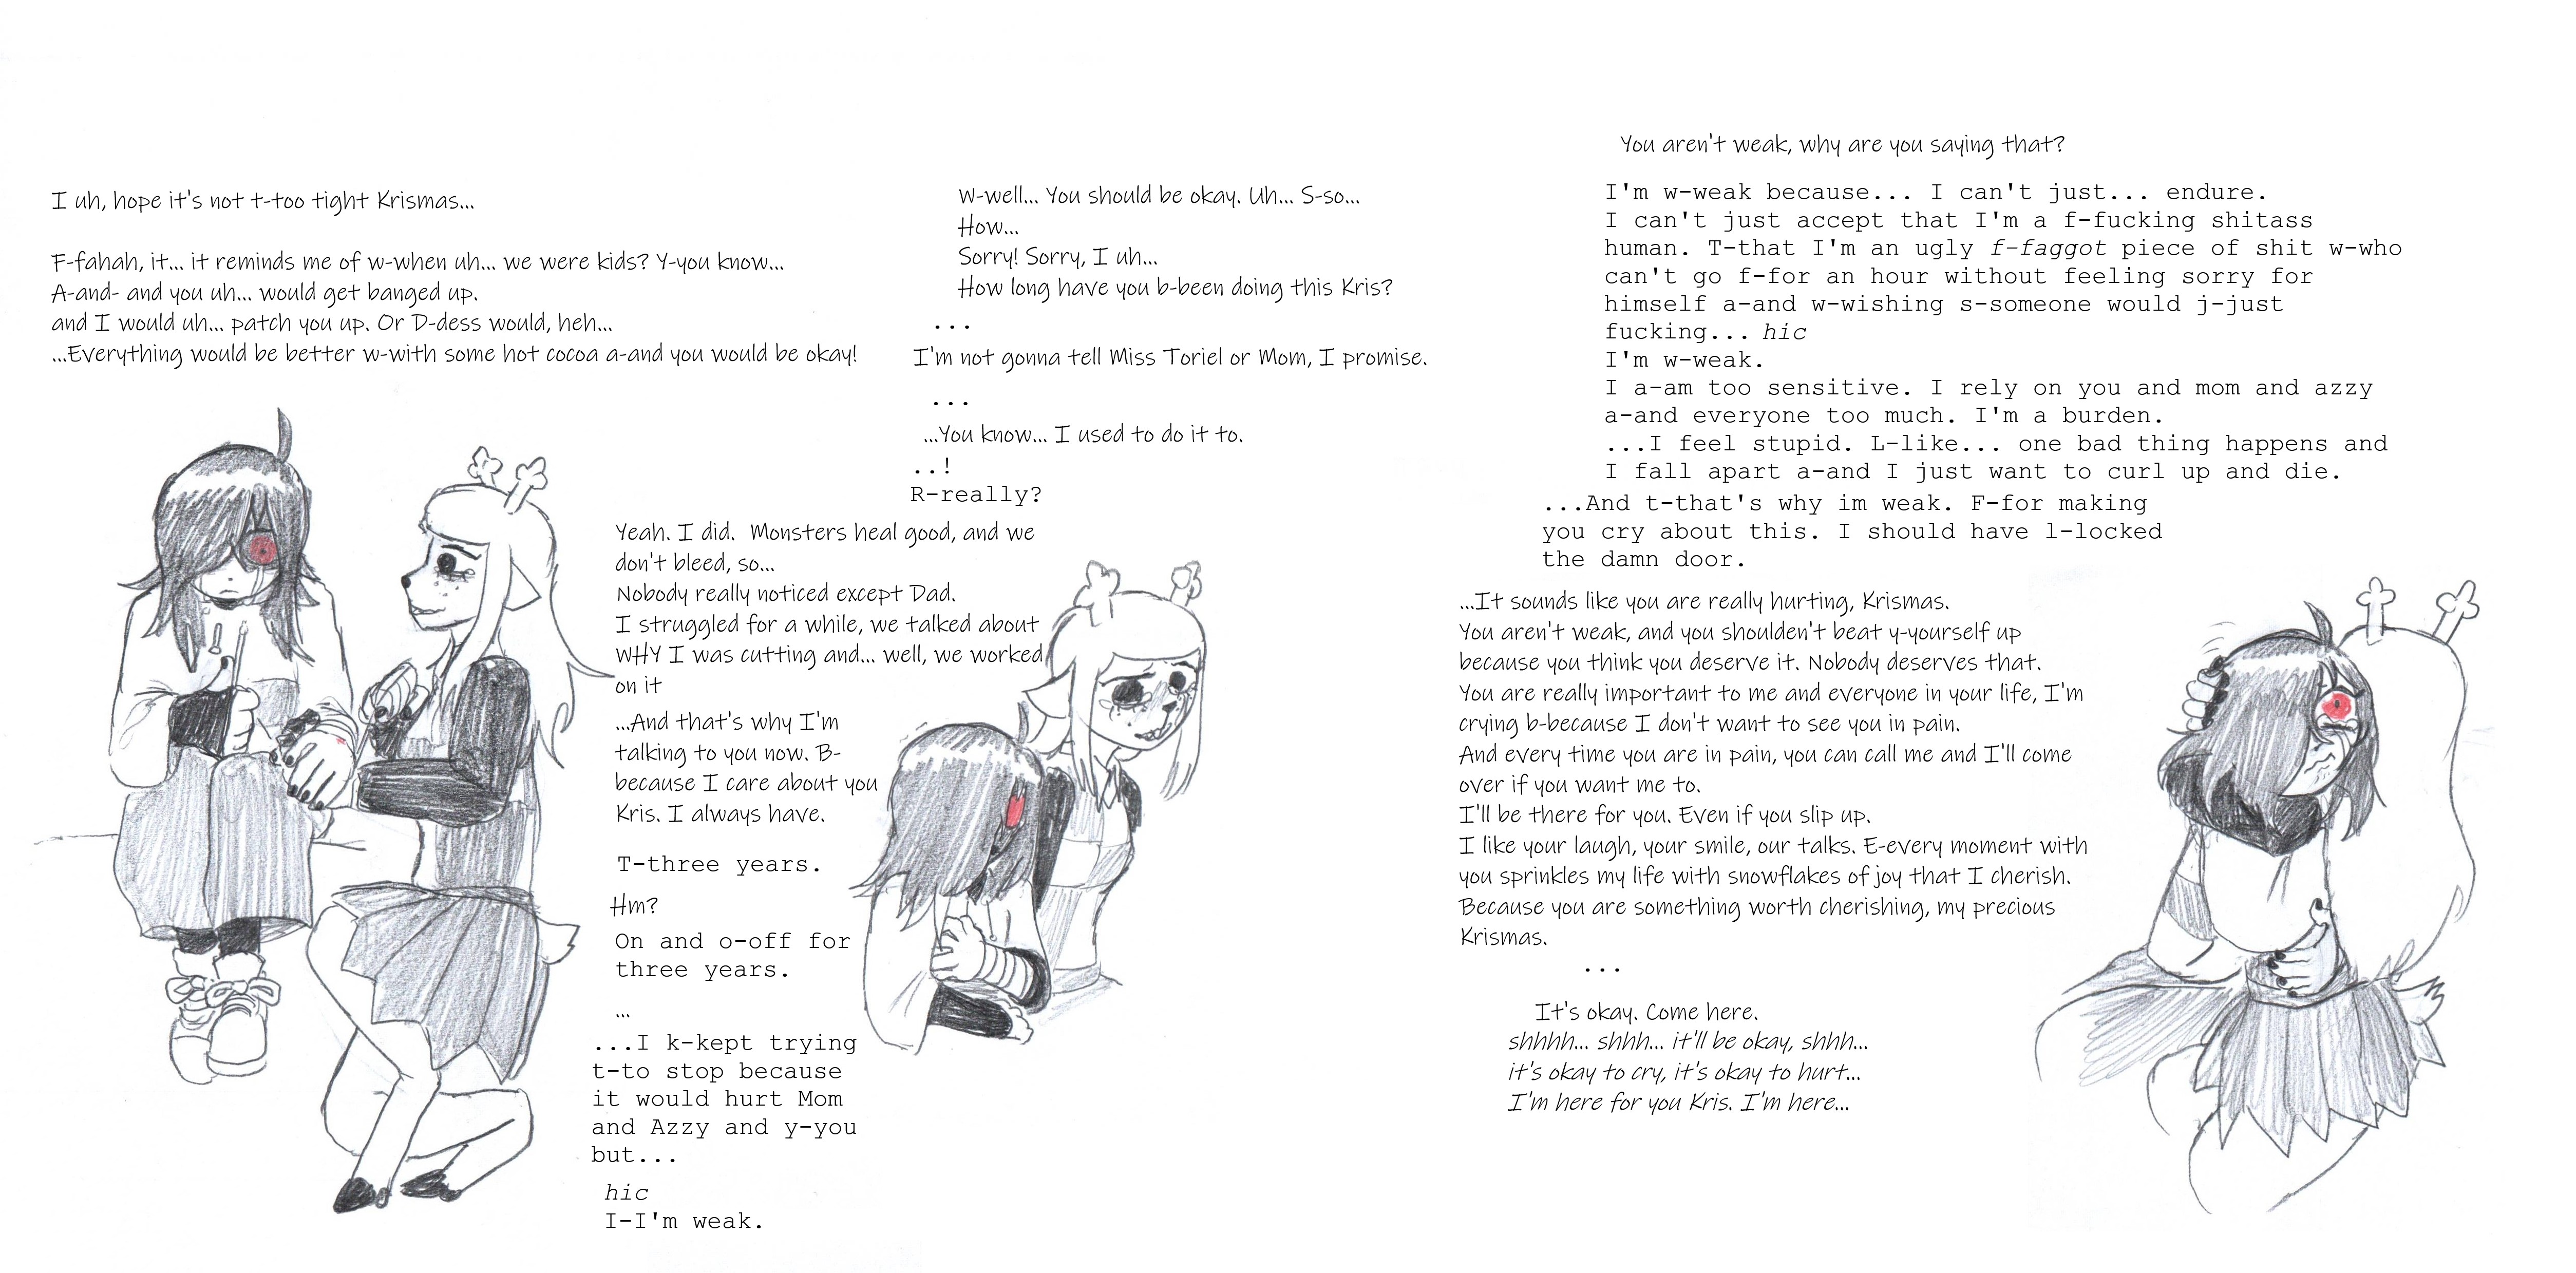 I uh, hope it's not t-too tight Krismas...
F-fahah, it... it reminds me of w-when uh... we were kids? Y-you know...
A-and- and you uh... would get banged up.
and I would uh... patch you up. Or D-dess would, heh...
...Everything would be better w-with some hot cocoa a-and you would be okay!
W-well... You should be okay. Uh... S-so...
How...
Sorry! Sorry, I uh...
How long have you b-been doing this Kris?
...
I'm not gonna tell Miss Toriel or Mom, I promise.
...
...You know... I used to do it to.
..!
R-really?
Yeah. I did. Monsters heal good, and we
don't bleed, so...
Nobody really noticed except Dad.
I struggled for a while, we talked about
WHY I was cutting and... well, we worked
on it
...And that's why I'm
talking to you now. B-
because I care about you
Kris. I always have.
T-three years.
Hm?
On and o-off for
three years.
...
...I k-kept trying
t-to stop because
it would hurt Mom
and Azzy and y-you
but...
hic
I-I'm weak.
You aren't weak, why are you saying that?
I'm w-weak because... I can't just... endure.
I can't just accept that I'm a f-fucking shitass
human. T-that I'm an ugly f-faggot piece of shit w-who
can't go f-for an hour without feeling sorry for
himself a-and w-wishing s-someone would j-just
fucking... hic
I'm w-weak.
I a-am too sensitive. I rely on you and mom and azzy
a-and everyone too much. I'm a burden.
...I feel stupid. L-like... one bad thing happens and
I fall apart a-and I just want to curl up and die.
...And t-that's why im weak. F-for making
you cry about this. I should have l-locked
the damn door.
...It sounds like you are really hurting, Krismas.
You aren't weak, and you shoulden't beat y-yourself up
because you think you deserve it. Nobody deserves that.
You are really important to me and everyone in your life, I'm
crying b-because I don't want to see you in pain.
And every time you are in pain, you can call me and I'll come
over if you want me to.
I'll be there for you. Even if you slip up.
I like your laugh, your smile, our talks. E-every moment with
you sprinkles my life with snowflakes of joy that I cherish.
Because you are something worth cherishing, my precious
Krismas.
...
It's okay. Come here.
shhhh... shhh... it'll be okay, shhh...
it's okay to cry, it's okay to hurt...
I'm here for you Kris. I'm here...